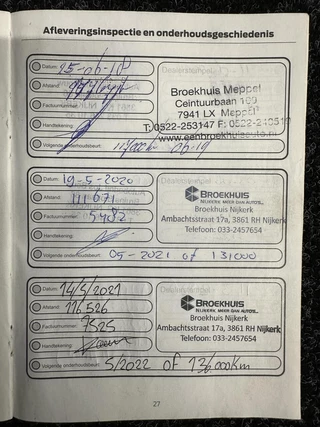 Afleveringsinspectie en onderhoudsgeschiedenis
Datum: 25-06-18
Afstand:
Factuurnummer:
Handtekening:
Volgende onderhoudsbeurt: 06-19
Dealerstempel:
Broekhuis Meppel
Ceintuurbaan 100
7941 LX Meppel
T: 0522-253147 F: 0522-240517
www.eenbroekhuisauto.nl
Datum: 19-5-2020
Afstand: 111671
Factuurnummer: 5482
Handtekening:
Volgende onderhoudsbeurt: 05-2021 of 131000
BROEKHUIS
NIJKERK. MEER DAN AUTO'S..
Broekhuis Nijkerk
Ambachtsstraat 17a, 3861 RH Nijkerk
Telefoon: 033-2457654
Datum: 14/5/2021
Afstand: 116.526
Factuurnummer: 7525
Handtekening:
Volgende onderhoudsbeurt: 5/2022 of 136.000Km
BROEKHUIS
NIJKERK. MEER DAN AUTO'S..
Broekhuis Nijkerk
Ambachtsstraat 17a, 3861 RH Nijkerk
Telefoon: 033-2457654
27